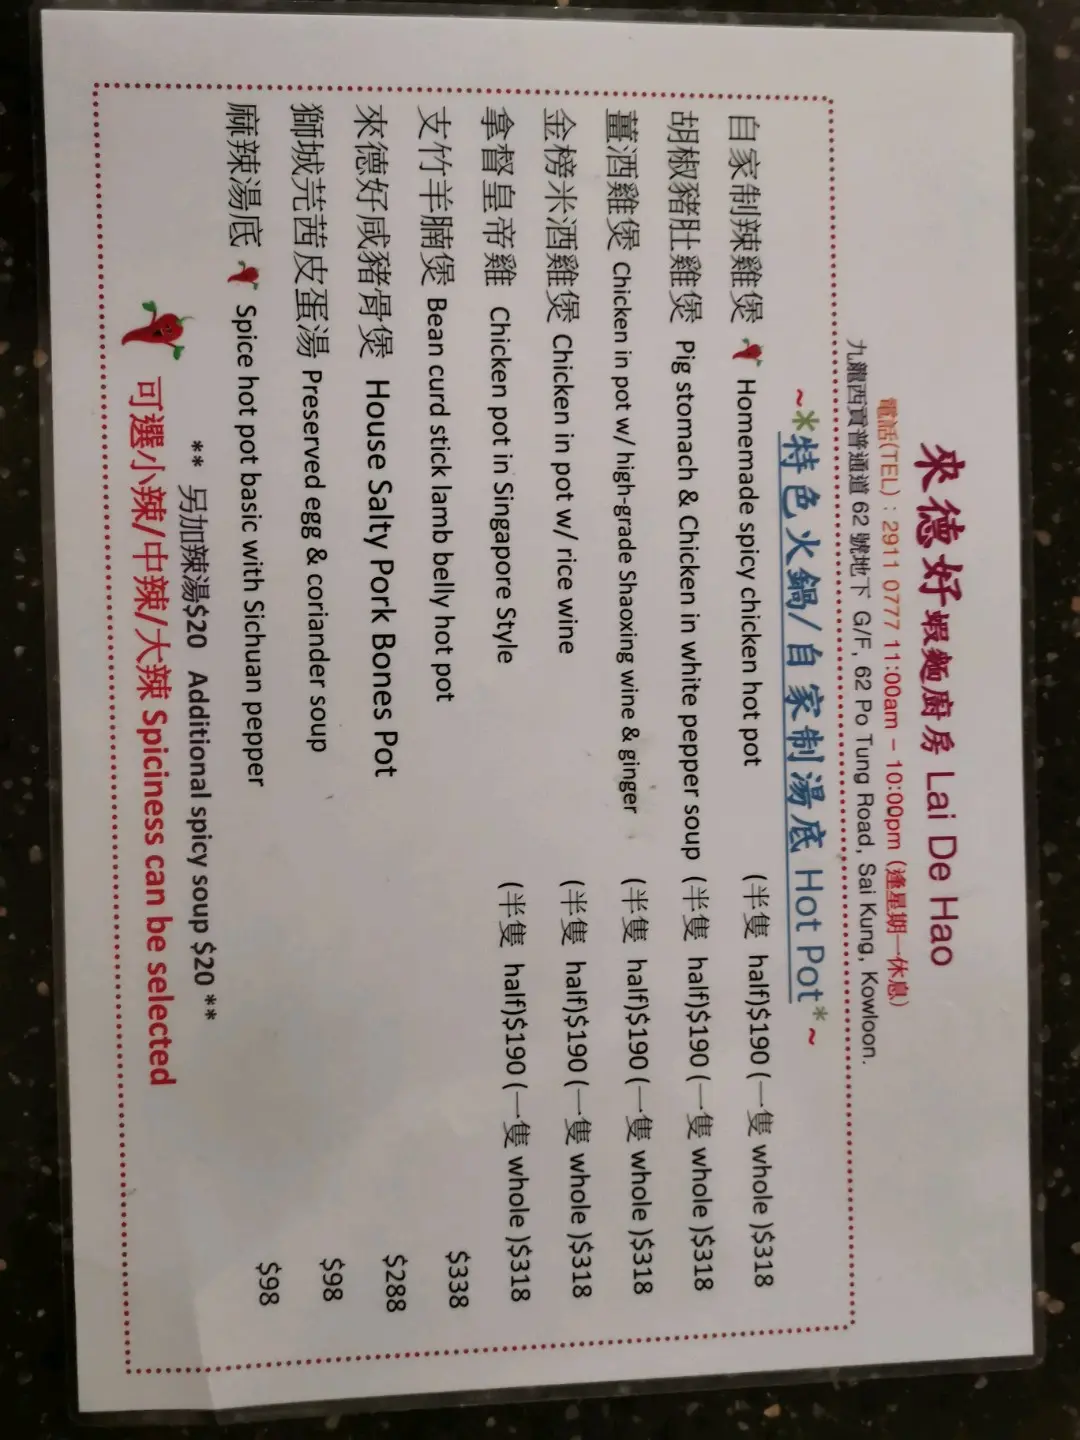 來德好蝦麵廚房 Lai De Hao
電話(TEL) : 2911 0777 11:00am – 10:00pm (逢星期一休息)
九龍西貢普通道 62 號地下 G/F, 62 Po Tung Road, Sai Kung, Kowloon.
~*特色火鍋/自家制湯底 Hot Pot*~
自家制辣雞煲 Homemade spicy chicken hot pot (半隻 half)$190 (一隻 whole )$318
胡椒豬肚雞煲 Pig stomach & Chicken in white pepper soup (半隻 half)$190 (一隻 whole )$318
薑酒雞煲 Chicken in pot w/ high-grade Shaoxing wine & ginger (半隻 half)$190 (一隻 whole )$318
金榜米酒雞煲 Chicken in pot w/ rice wine (半隻 half)$190 (一隻 whole )$318
拿督皇帝雞 Chicken pot in Singapore Style (半隻 half)$190 (一隻 whole )$318
支竹羊腩煲 Bean curd stick lamb belly hot pot $338
來德好咸豬骨煲 House Salty Pork Bones Pot $288
獅城芫茜皮蛋湯 Preserved egg & coriander soup $98
麻辣湯底 Spice hot pot basic with Sichuan pepper $98
** 另加辣湯$20 Additional spicy soup $20 **
可選小辣/中辣/大辣 Spiciness can be selected